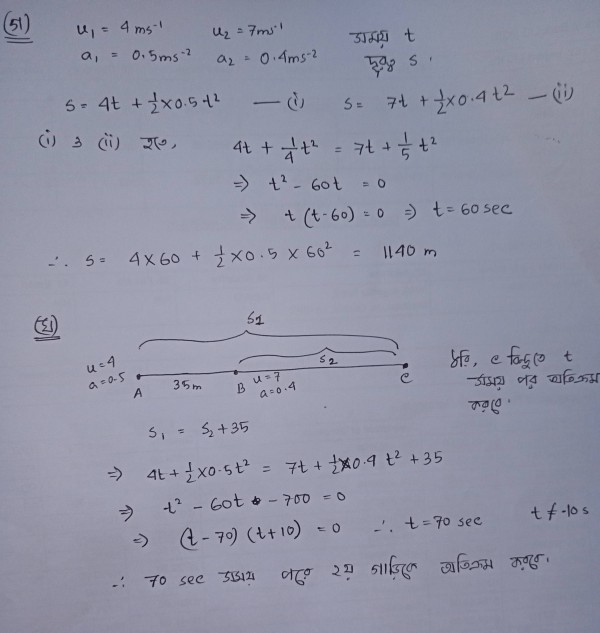 (গ) u₁ = 4 ms⁻¹ u₂ = 7ms⁻¹ সময় t
a₁ = 0.5ms⁻² a₂ = 0.4ms⁻² দূরত্ব s.
s = 4t + ½×0.5t² — (i) s = 7t + ½×0.4t² — (ii)
(i) ও (ii) হতে, 4t + ¼t² = 7t + ⅕t²
⇒ t² - 60t = 0
⇒ t(t-60) = 0 ⇒ t = 60 sec
∴ s = 4×60 + ½×0.5×60² = 1140 m
(ঘ) S1
S2
u=4
a=0.5
A 35m B u=7
a=0.4
C
ধরি, C বিন্দুতে t
সময় পর অতিক্রম
করবে.
S₁ = S₂+35
⇒ 4t + ½×0.5t² = 7t + ½×0.4t² + 35
⇒ t² - 60t - 700 = 0
⇒ (t-70)(t+10) = 0 ∴ t = 70 sec t ≠ -10 s
∴ 70 sec সময় পরে ২য় গাড়িকে অতিক্রম করবে.